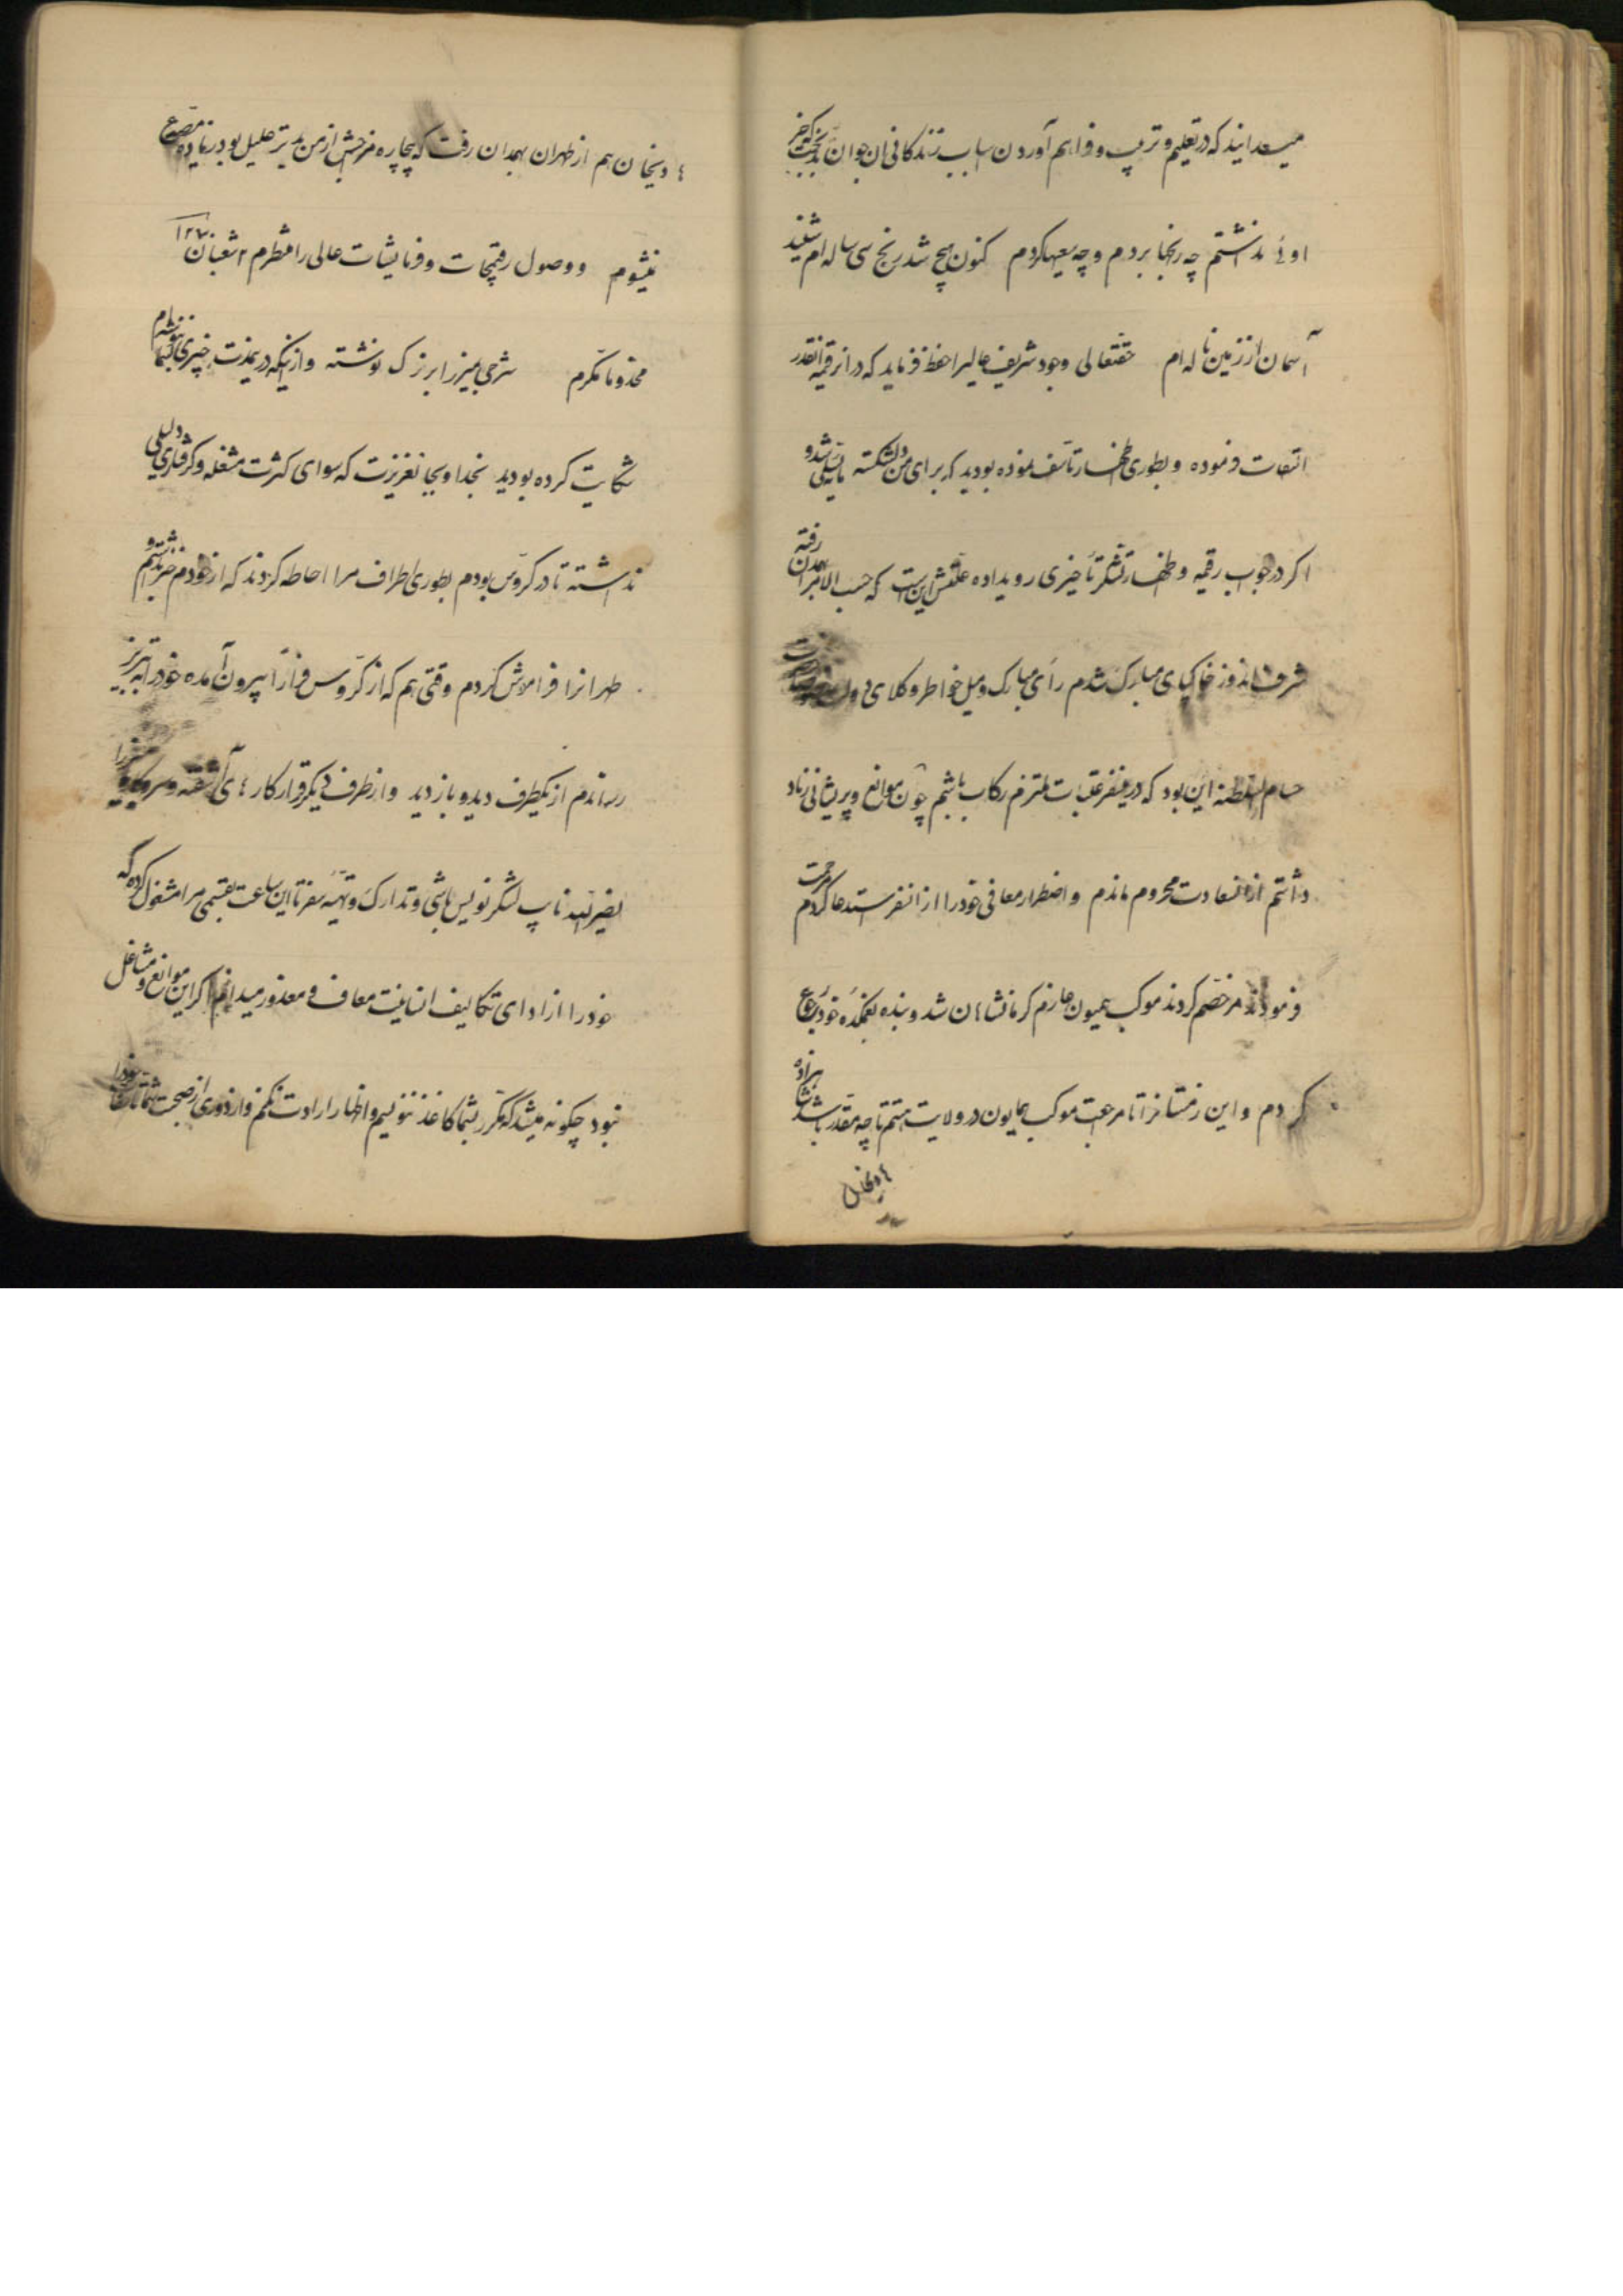 میدانید که در تعلیم و تربیت و فراهم آوردن اسباب زندگانی آن جوان که جز
او ئی نداشتم چه رنجها بردم و چه سعیها کردم کنون هیچ شد رنج سی ساله ام شنید
آسمان از زمین ناله ام حقتعالی وجود شریف عالیرا حفظ فرماید که در آن رقیمه آنقدر
التفات فرموده و بطوری اظهار تأسف نموده بودید که برای من دلشکسته مایه تسلی شد و
اگر در جواب رقیمه و اظهار تشکر تأخیری رویداده علتش این است که حسب الامر بهمدان رفته
شرف اندوز خاکپای مبارک شدم رأی مبارک و میل خواطر وکلای
حسام السلطنه این بود که در سفر عتبات ملتزم رکاب باشم چون موانع و پریشانی زیاد
داشتم از آن سعادت محروم ماندم و اضطرار معافی خود را از آن سفر استدعا کردم مرحمت
فرمودند مرخصم کردند موکب همیون عازم کرمانشاهان شد و بنده بغمکده خود رجوع
کردم و این زمستانرا تا مراجعت موکب همایون در ولایت هستم تا چه مقدر باشد
ادیخان هم از طهران بهمدان رفت که بیچاره مزاجش از من بدتر علیل بود زیاده مصدع
نمیشوم و وصول رقیمجات و فرمایشات عالی را منتظرم ۲ شعبان ۱۲۷
مخدوما مکرم شرحی بمیرزا بزرک نوشته و از اینکه در اینمدت چیزی بشما ننوشته ام
شکایت کرده بودید بخدا و بجان عزیزت که سوای کثرت مشغله و گرفتاری دلیلی
نداشته تا در گروس بودم بطوری اطراف مرا احاطه کردند که از خودم خبر نداشتم و
طهرانرا فراموش کردم وقتی هم که از گروس فراراً بیرون آمده خود را به تبریز
رساندم از یکطرف دید و بازدید و از طرف دیگر قرار کارهای آشفته و سر و
نصیرالله نایب لشکر نویس باشی و تدارک و تهیه سفر تا این ساعت بقسمی مرا مشغول کرده که
خود را از ادای تکالیف انسانیت معاف و معذور میدانم اگر این موانع و مشاغل
نبود چگونه میشد که مکرر بشما کاغذ ننویسم و اظهار ارادت نکنم و از دوری از صحبت شما